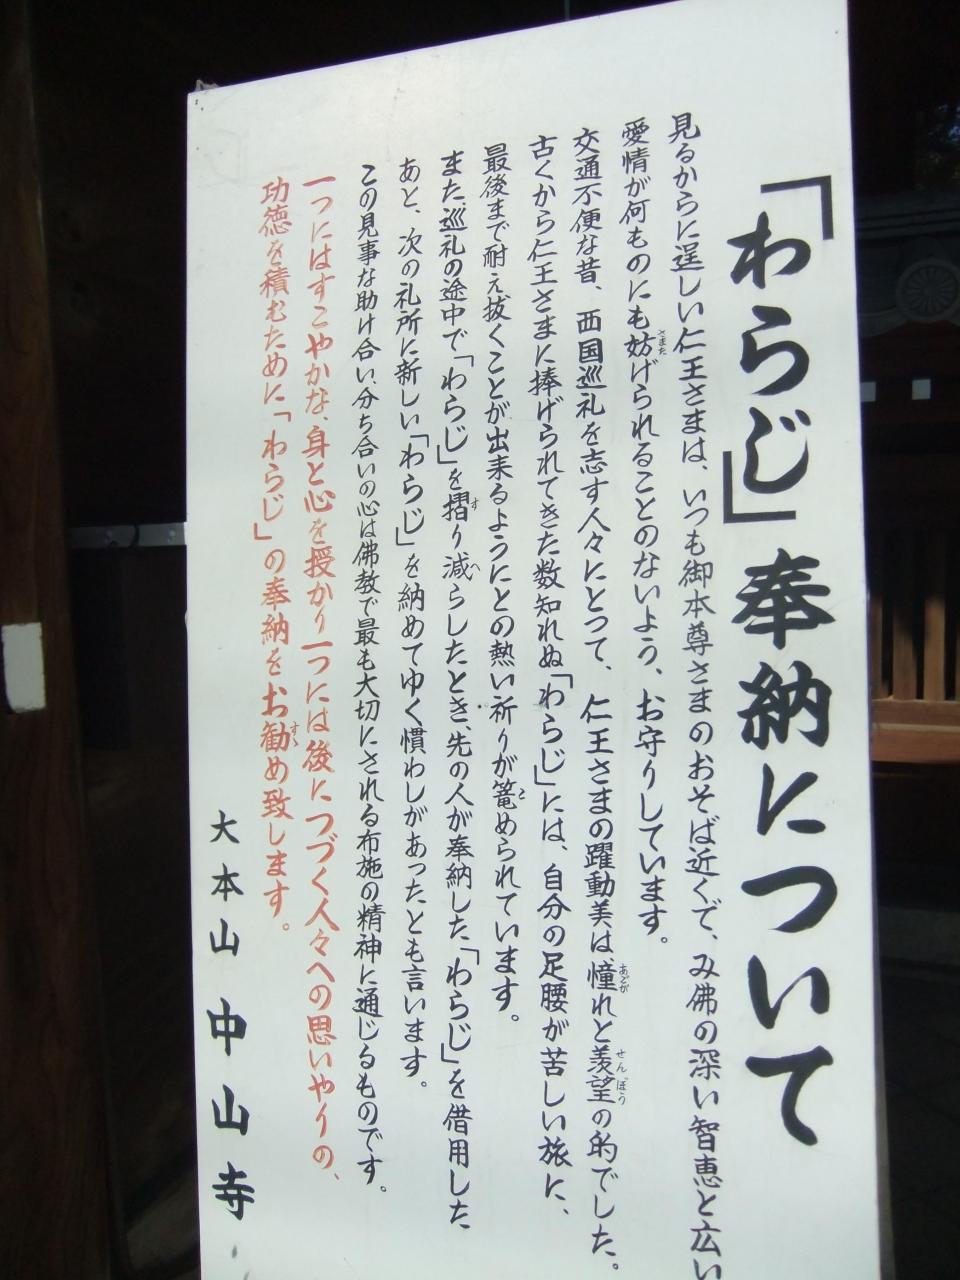 「わらじ」奉納について
見るからに逞しい仁王さまは、いつも御本尊さまのおそば近くで、み佛の深い智恵と広い
愛情が何ものにも妨げられることのないよう、お守りしています。
交通不便な昔、西国巡礼を志す人々にとって、仁王さまの躍動美は、憧れと羨望の的でした。
古くから仁王さまに捧げられてきた数知れぬ「わらじ」には、自分の足腰が苦しい旅に、
最後まで耐え抜くことが出来るようにとの熱い祈りが篭められています。
また、巡礼の途中で「わらじ」を摺り減らしたとき、先の人が奉納した「わらじ」を借用した
あと、次の札所に新しい「わらじ」を納めてゆく慣わしがあったとも言います。
この見事な助け合い、分ち合いの心は佛教で最も大切にされる布施の精神に通じるものです。
一つにはすこやかな、身と心を授かり一つには後につづく人々への思いやりの、
功徳を積むために「わらじ」の奉納をお勧め致します。
大本山 中山寺